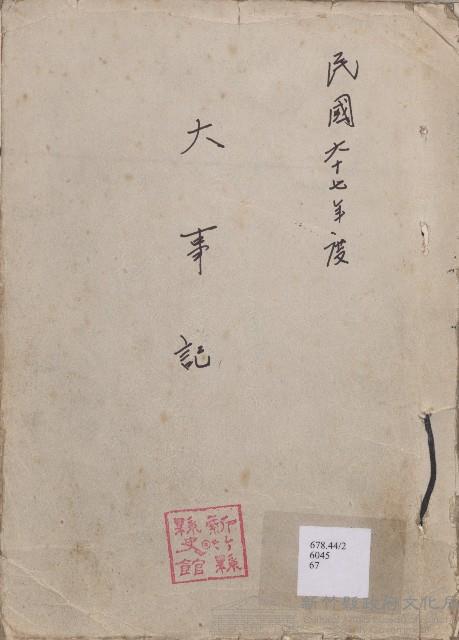 民國六十七年度
大事記
678.44/2
6045
67
新竹縣政府文化局